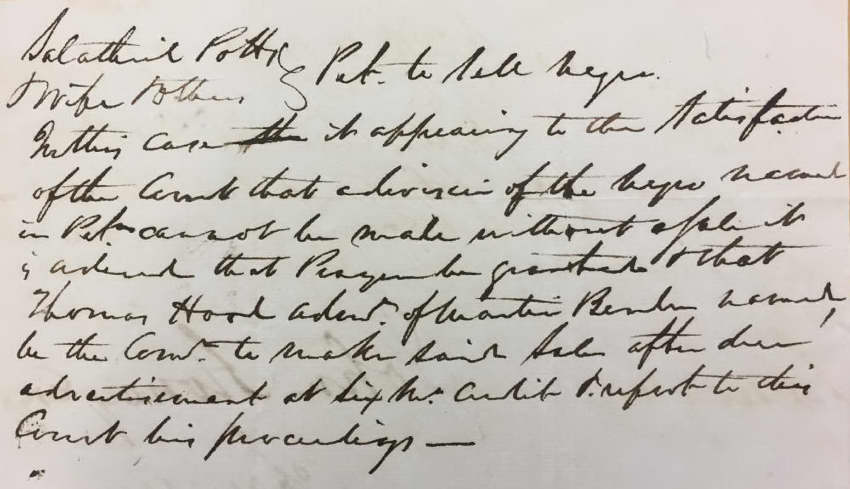 Salathiel Potts
& Wife & others } Pet. to Sell Negro.
In this case the it appearing to the Satisfaction
of the Court that a division of the Negro named
in Petn cannot be made without a sale it
is ordered that Prayer be granted & that
Thomas Hood admr. of Martin Bender named,
be the Comr. to make said Sale after due
advertisement at Six Mo. Credit & report to this
Court his proceedings —